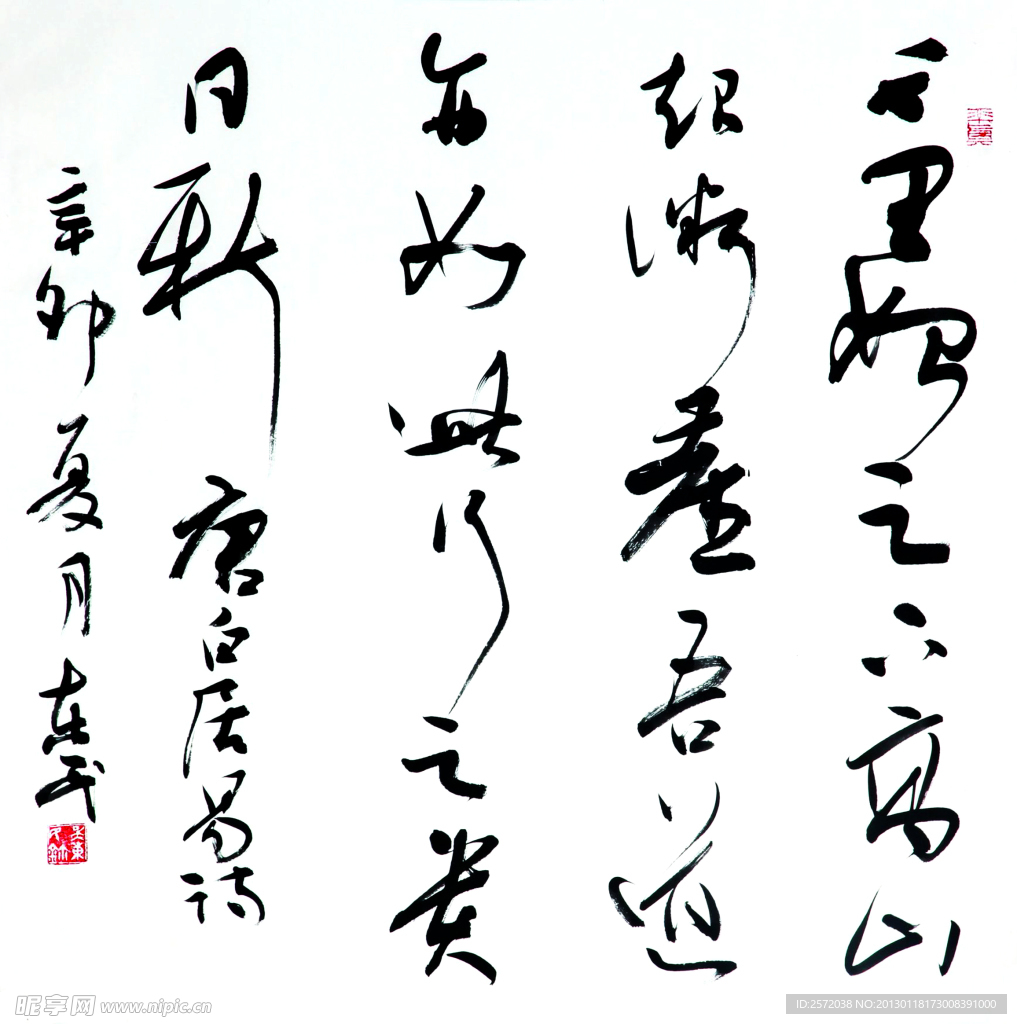 千里始足下高山
起微塵吾道
亦如此行之貴
日新 唐白居易詩
辛卯夏月
昵享网 www.nipic.cn
ID:2572038 NO:20130118173008391000